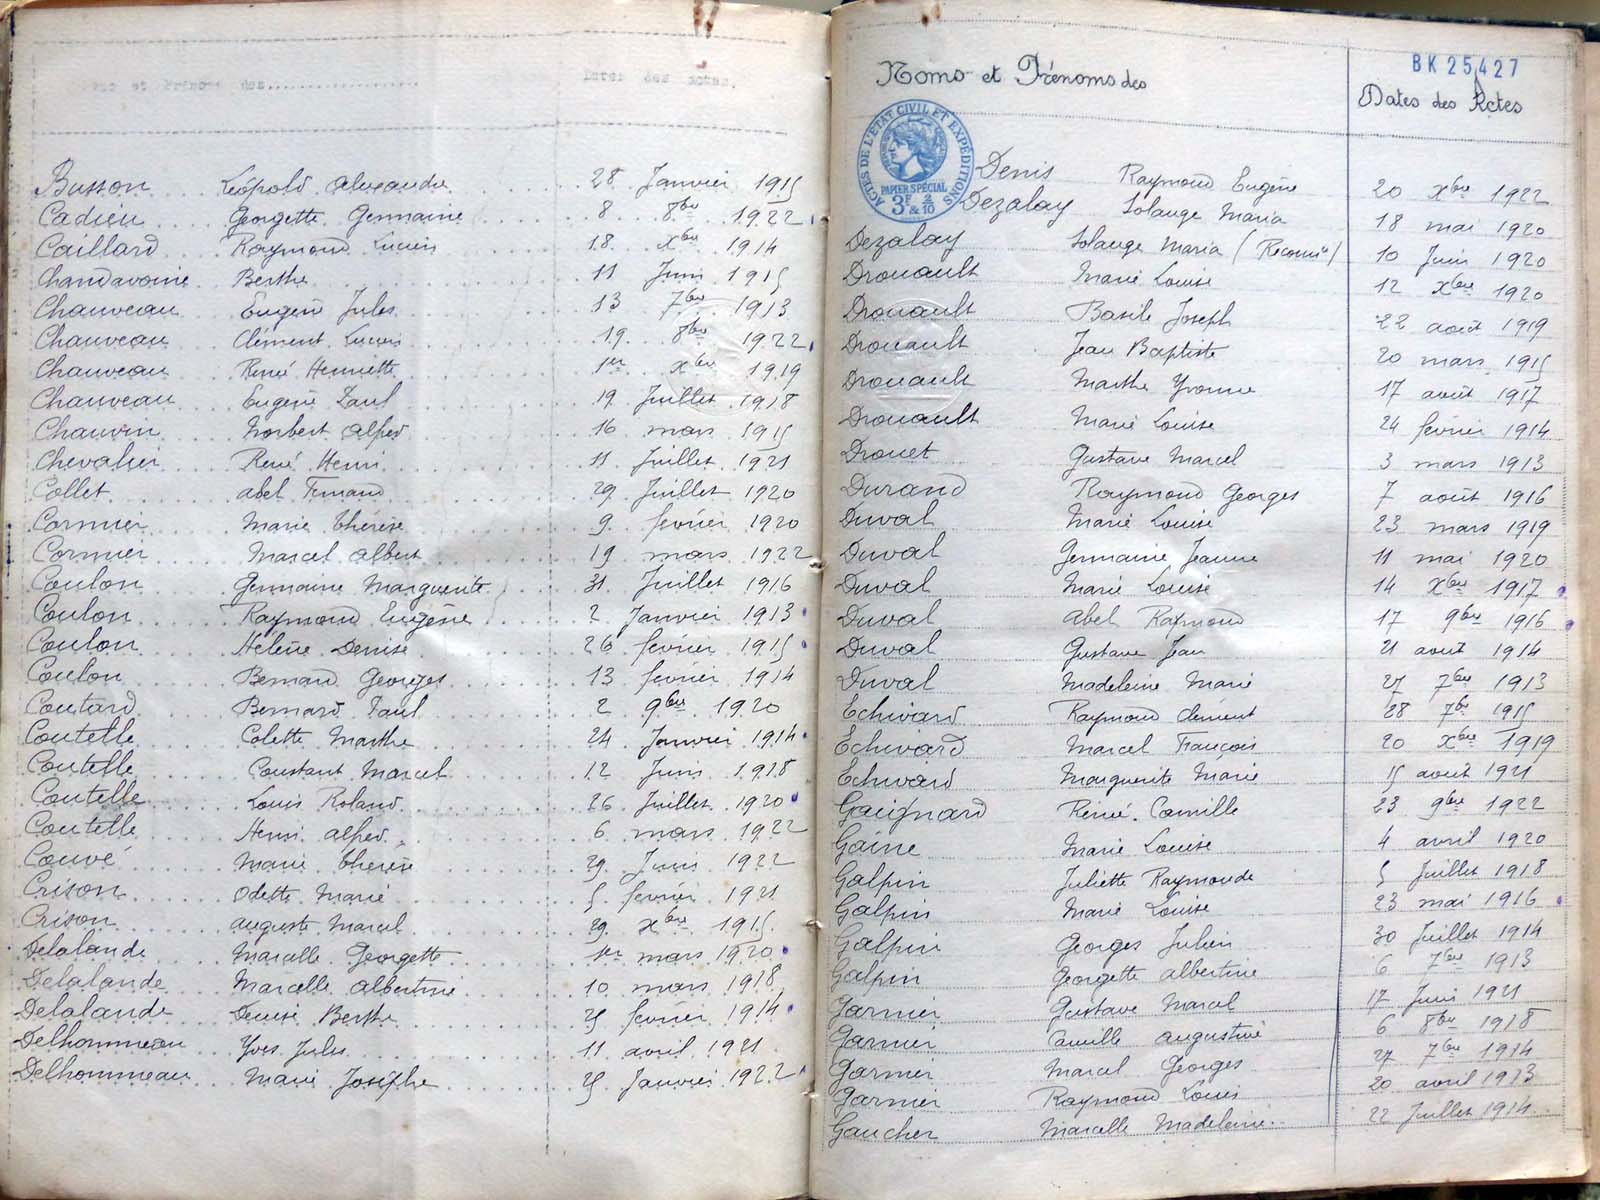 Busson Léopold Alexandre 28 Janvier 1915
Cadieu Georgette Germaine 8 8bre 1922
Caillard Raymond Lucien 18 Xbre 1914
Chandavoine Berthe 11 Juin 1915
Chauveau Eugène Jules 13 7bre 1913
Chauveau Clément Lucien 19 8bre 1922
Chauveau René Henriette 1er Xbre 1919
Chauveau Eugène Paul 19 Juillet 1918
Chauvin Norbert Alfred 16 mars 1915
Chevalier René Henri 11 Juillet 1921
Collet Abel Fernand 29 Juillet 1920
Cormier Marie Thérèse 9 février 1920
Cormier Marcel Albert 19 mars 1922
Coulon Germaine Marguerite 31 Juillet 1916
Coulon Raymond Eugène 2 Janvier 1913
Coulon Hélène Denise 26 février 1915
Coulon Bernard Georges 13 février 1914
Coutard Bernard Paul 2 9bre 1920
Coutelle Colette Marthe 24 Janvier 1914
Coutelle Constant Marcel 12 Juin 1918
Coutelle Louis Roland 26 Juillet 1920
Coutelle Henri Alfred 6 mars 1922
Couvé Marie Thérèse 29 Juin 1922
Crison Odette Marie 5 février 1921
Crison Auguste Marcel 29 Xbre 1915
Delalande Marcelle Georgette 1er mars 1920
Delalande Marcelle Albertine 10 mars 1918
Delalande Denise Berthe 25 février 1914
Delhommeau Yves Jules 11 avril 1921
Delhommeau Marie Josèphe 25 Janvier 1922
BK 25427
Noms et Prénoms des Dates des Actes
ACTES DE L'ETAT CIVIL ET EXPÉDITIONS
PAPIER SPÉCIAL
3F & 2/10
Denis Raymond Eugène 20 Xbre 1922
Dezalay Solange Maria 18 mai 1920
Dezalay Solange Maria (Reconnce) 10 Juin 1920
Drouault Marie Louise 12 Xbre 1920
Drouault Basile Joseph 22 août 1919
Drouault Jean Baptiste 20 mars 1915
Drouault Marthe Yvonne 17 août 1917
Drouault Marie Louise 24 février 1914
Drouet Gustave Marcel 3 mars 1913
Durand Raymond Georges 7 août 1916
Duval Marie Louise 23 mars 1919
Duval Germaine Jeanne 11 mai 1920
Duval Marie Louise 14 Xbre 1917
Duval Abel Raymond 17 9bre 1916
Duval Gustave Jean 21 août 1914
Duval Madeleine Marie 27 7bre 1913
Echivard Raymond Clément 28 7bre 1915
Echivard Marcel François 20 Xbre 1919
Echivard Marguerite Marie 15 août 1921
Gaignard Réné Camille 23 9bre 1922
Gaine Marie Louise 4 avril 1920
Galpin Juliette Raymonde 5 Juillet 1918
Galpin Marie Louise 23 mai 1916
Galpin Georges Julien 30 Juillet 1914
Galpin Georgette Albertine 6 7bre 1913
Garnier Gustave Marcel 17 Juin 1921
Garnier Camille Augustine 6 8bre 1918
Garnier Marcel Georges 27 7bre 1914
Garnier Raymond Louis 20 avril 1913
Gaucher Marcelle Madeleine 22 Juillet 1914